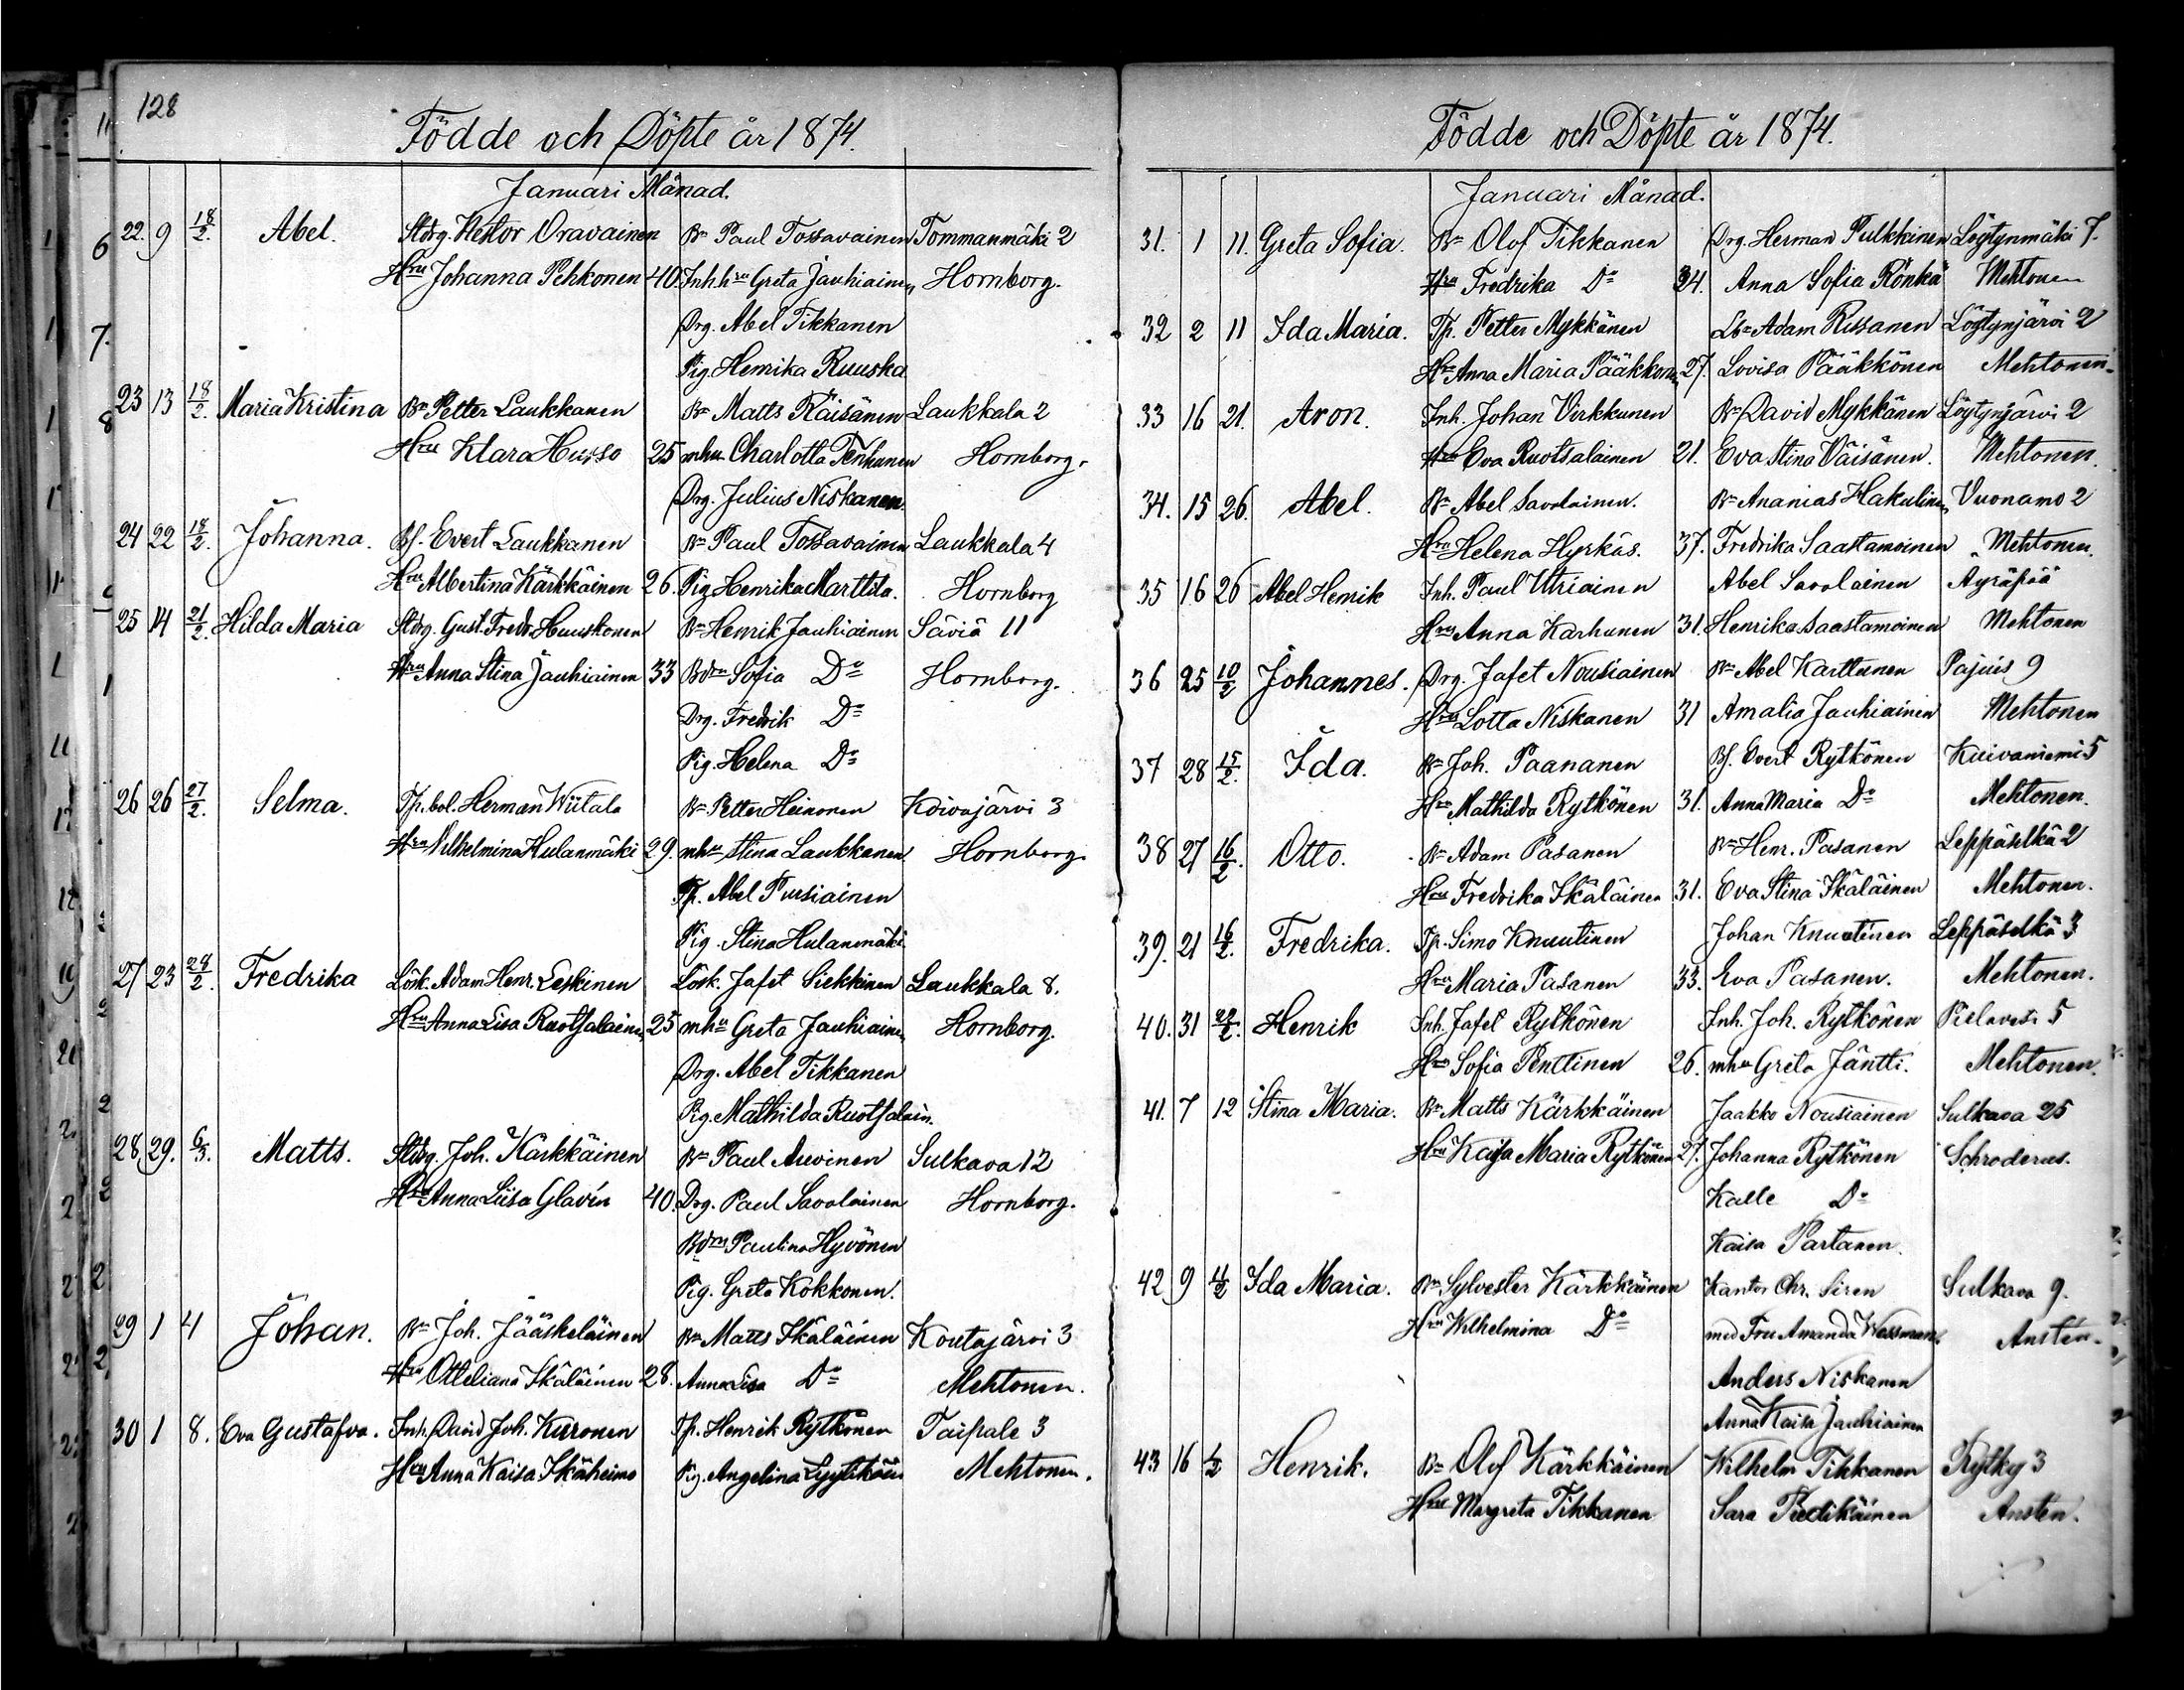 128
Födde och Döpte år 1874.
Januari Månad.
22. 9 18/2. Abel. Stdrg. Nestor Oravainen Bn Paul Tossavainen Tommanmäki 2
Hru Johanna Pehkonen 40. Inh.hru Greta Jauhiainen Hornborg.
Drg. Abel Tikkanen
Pig. Henrika Ruuska
23 13 18/2. Maria Kristina Bn Petter Laukkanen Bn Matts Räisänen Laukkala 2
Hru Klara Husso 25 mhu Charlotta Tenhunen Hornborg.
Drg. Julius Niskanen.
24 22 18/2. Johanna. Bf. Evert Laukkanen Bn Paul Tossavainen Laukkala 4
Hru Albertina Kärkkäinen 26. Pig Henrika Marttila. Hornborg
25 14 21/2. Hilda Maria Stdrg. Gust. Fredr. Huuskonen Bn Henrik Jauhiainen Säviä 11
Hru Anna Stina Jauhiainen 33 Bdru Sofia Do Hornborg.
Drg. Fredrik Do
Pig. Helena Do
26 26 27/2. Selma. Tp. bol. Herman Wiitala Bn Petter Heinonen Koivujärvi 3
Hru Vilhelmina Hulanmäki 29. mhu Stina Laukkanen Hornborg.
Tp. Abel Pursiainen
Pig. Stina Hulanmäki
27 23 28/2. Fredrika Lösk. Adam Henr. Leskinen Lösk. Jafet Siekkinen Laukkala 8.
Hru Anna Lisa Ruotsalainen 25 mhu Greta Jauhiainen Hornborg.
Drg. Abel Tikkanen
Pig. Mathilda Ruotsalain.
28. 29. 6/3. Matts. Stdrg. Joh. Kärkkäinen Bn Paul Auvinen Sulkava 12
Hru Anna Liisa Glavin 40. Drg. Paul Savolainen Hornborg.
Bdru Paulina Hyvönen
Pig. Greta Kokkonen.
29 1 4 Johan. Bn Joh. Jääskeläinen Bn Matts Ikäläinen Koutajärvi 3
Hru Otteliana Ikäläinen 28. Anna Lisa Do Mehtonen.
30 1 8. Eva Gustafva. Inh. David Joh. Kuronen Tp. Henrik Rytkönen Taipale 3
Hru Anna Kaisa Ikäheimo Pig. Angelina Mehtonen.
Födde och Döpte år 1874.
Januari Månad.
31. 1 11. Greta Sofia. Bn Olof Tikkanen Drg. Herman Pulkkinen Löytynmäki 7.
Hru Fredrika Do 34. Anna Sofia Rönkä Mehtonen
32 2 11 Ida Maria. Tp. Petter Mykkänen Adam Rissanen Löytynjärvi 2
Hru Anna Maria Pääkkönen 27. Lovisa Pääkkönen Mehtonen.
33 16 21. Aron. Inh. Johan Virkkunen Bn David Mykkänen Löytynjärvi 2
Hru Eva Ruotsalainen 21. Eva Stina Väisänen. Mehtonen.
34. 15 26. Abel. Bn Abel Savolainen. Bn Ananias Hakulinen Vuonamo 2
Hru Helena Hyrkäs. 37. Fredrika Saastamoinen Mehtonen.
35 16 26 Abel Henrik Inh. Paul Utriainen Abel Savolainen Ayräpää
Hru Anna Karhunen 31. Henrika Saastamoinen Mehtonen
36 25 10/2 Johannes. Drg. Jafet Nousiainen Bn Abel Karttunen Pajuis 9
Hru Lotta Niskanen 31 Amalia Jauhiainen Mehtonen
37 28 15/2. Ida. Bn Joh. Paananen Bf. Evert Rytkönen Kaivaniemi 5
Hru Mathilda Rytkönen 31. Anna Maria Do Mehtonen.
38 27 16/2. Otto. Bn Adam Pasanen Bn Henr. Pasanen Leppäselkä 2
Hru Fredrika Ikäläinen 31. Eva Stina Ikäläinen Mehtonen.
39. 21 16/2. Fredrika. Tp. Simo Knuutinen Johan Knuutinen Leppäselkä 3
Hru Maria Pasanen 33. Eva Pasanen. Mehtonen.
40. 31 22/2. Henrik Inh. Jafet Rytkönen Inh. Joh. Rytkönen Pielavesi 5
Hru Sofia Penttinen 26. mhu Greta Jäntti. Mehtonen.
41. 7 12 Stina Maria. Bn Matts Kärkkäinen Jaakko Nousiainen Sulkava 25
Hru Kaisa Maria Rytkönen 27. Johanna Rytkönen Schroderus.
Kalle Do
Kaisa Partanen.
42 9 Ida Maria. Bn Sylvester Kärkkäinen Kantor Chr. Siren Sulkava 9.
Hru Wilhelmina Do med Fru Amanda Wessman. Anstén.
Anders Niskanen
Anna Kaisa Jauhiainen
43 16 Henrik. Bn Olof Kärkkäinen Wilhelm Tikkanen Rytky 3
Hru Margreta Tikkanen Sara Anstén.